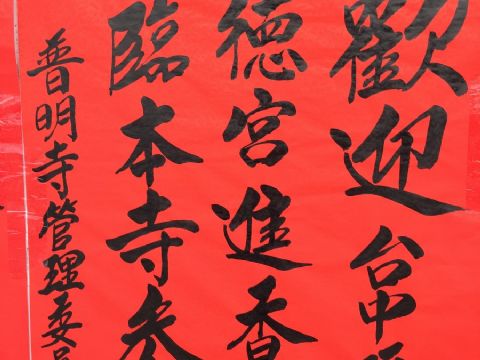 歡迎台中
德宮進香
臨本寺参
普明寺管理委員